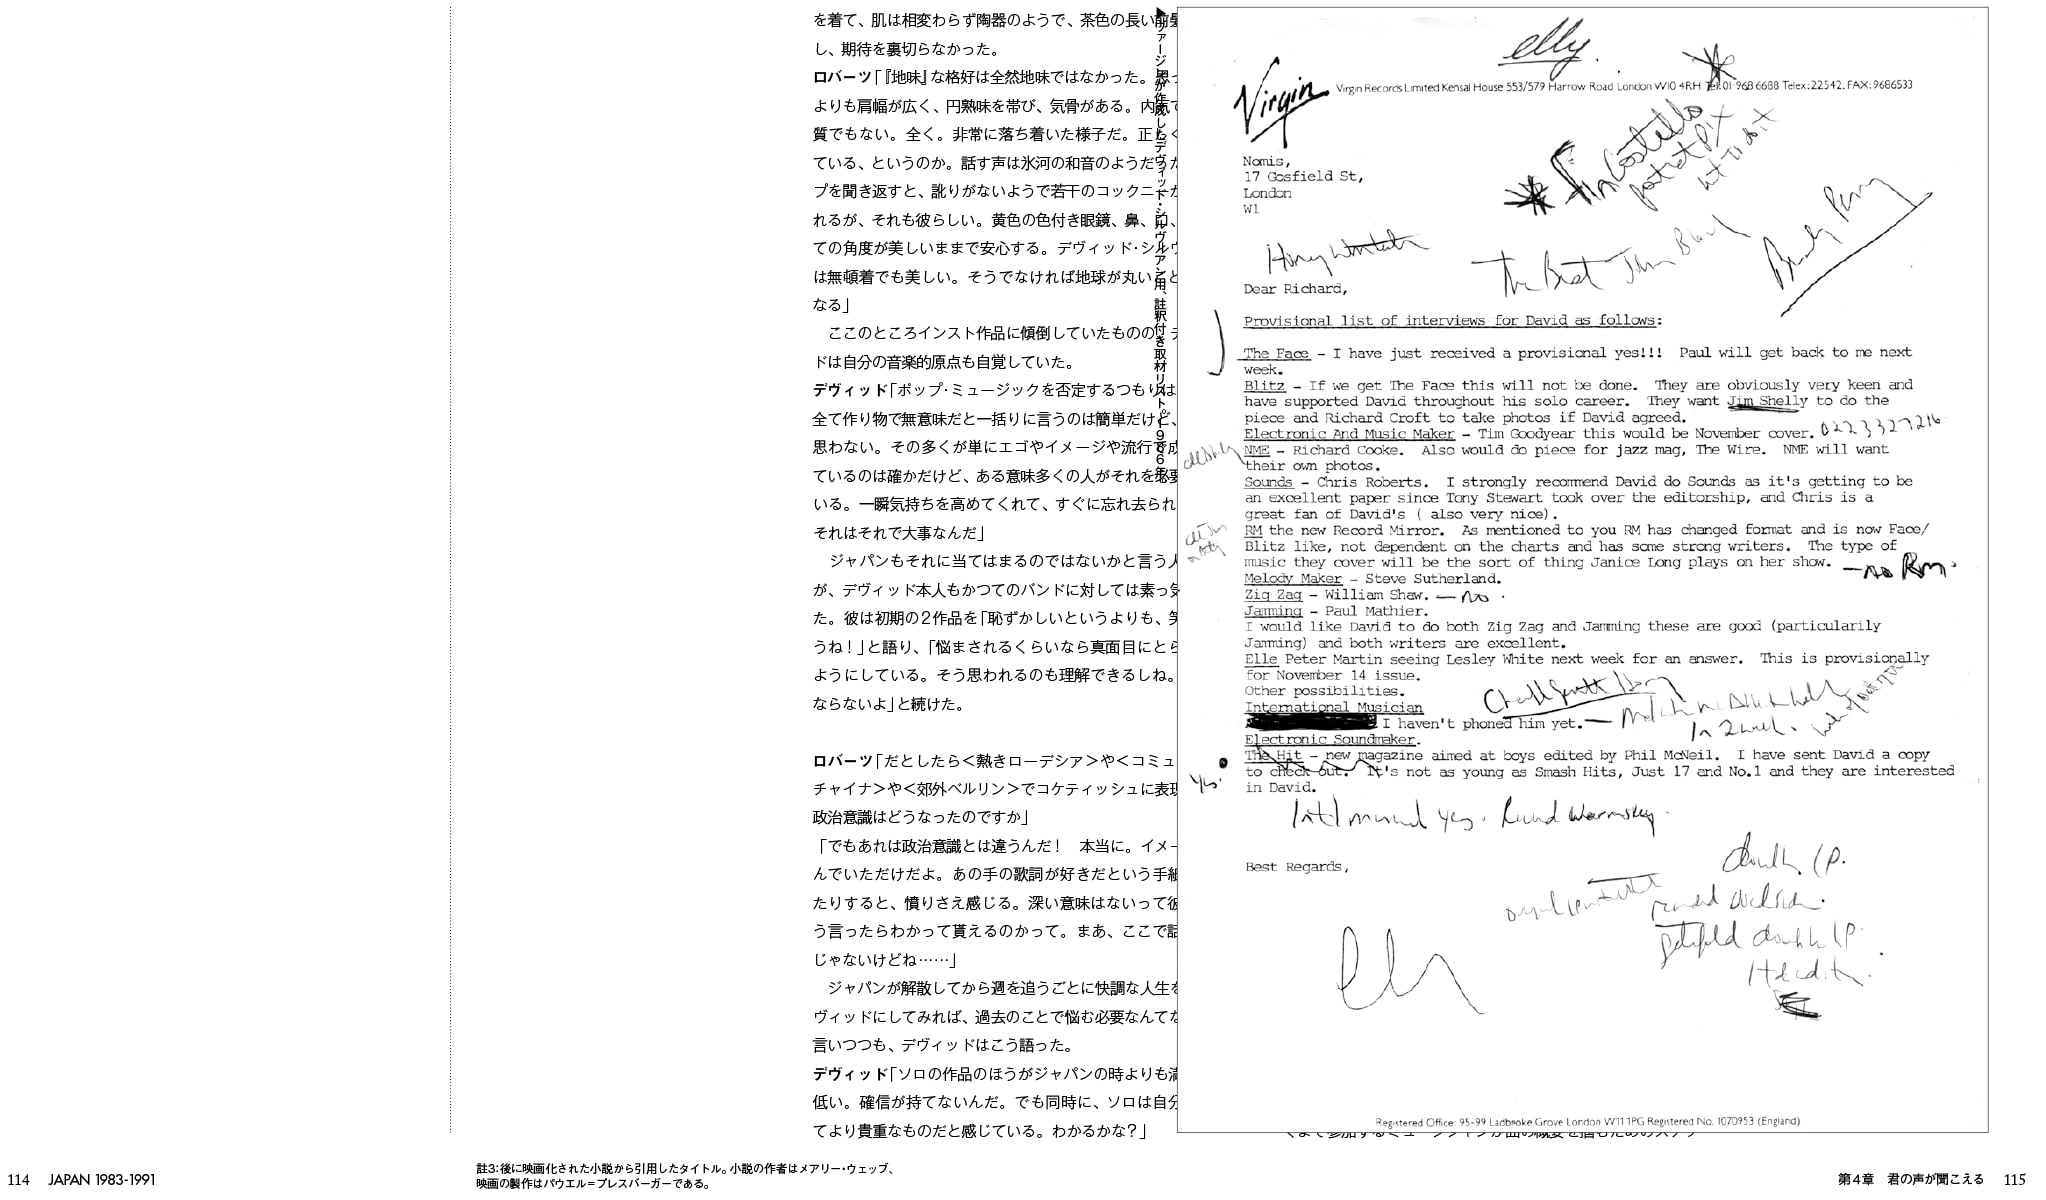 を着て、肌は相変わらず陶器のようで、茶色の長い前
し、期待を裏切らなかった。
ロバーツ「『地味』な格好は全然地味ではなかった。思っ
よりも肩幅が広く、円熟味を帯び、気骨がある。内気で
質でもない。全く。非常に落ち着いた様子だ。正しく
ている、というのか。話す声は氷河の和音のようだった
プを聞き返すと、訛りがないようで若干のコックニーが
れるが、それも彼らしい。黄色の色付き眼鏡、鼻、口、
ての角度が美しいままで安心する。デヴィッド・シルヴ
は無頓着でも美しい。そうでなければ地球が丸いこと
なる」
ここのところインスト作品に傾倒していたものの、デ
ドは自分の音楽的原点も自覚していた。
デヴィッド「ポップ・ミュージックを否定するつもりは
全て作り物で無意味だと一括りに言うのは簡単だけど、
思わない。その多くが単にエゴやイメージや流行で成
ているのは確かだけど、ある意味多くの人がそれを必要
いる。一瞬気持ちを高めてくれて、すぐに忘れ去られ
それはそれで大事なんだ」
ジャパンもそれに当てはまるのではないかと言う人
が、デヴィッド本人もかつてのバンドに対しては素っ気
た。彼は初期の2作品を「恥ずかしいというよりも、笑
うね!」と語り、「悩まされるくらいなら真面目にとら
ようにしている。そう思われるのも理解できるしね。
ならないよ」と続けた。
ロバーツ「だとしたら<熱きローデシア>や<コミュ
チャイナ>や<郊外ベルリン>でコケティッシュに表現
政治意識はどうなったのですか」
「でもあれは政治意識とは違うんだ! 本当に。イメー
んでいただけだよ。あの手の歌詞が好きだという手紙
たりすると、憤りさえ感じる。深い意味はないって彼
う言ったらわかって貰えるのかって。まあ、ここで話
じゃないけどね……」
ジャパンが解散してから週を追うごとに快調な人生を
ヴィッドにしてみれば、過去のことで悩む必要なんてな
言いつつも、デヴィッドはこう語った。
デヴィッド「ソロの作品のほうがジャパンの時よりも満
低い。確信が持てないんだ。でも同時に、ソロは自分
てより貴重なものだと感じている。わかるかな?」
註3:後に映画化された小説から引用したタイトル。小説の作者はメアリー・ウェッブ、
映画の製作はパウエル=プレスバーガーである。
114 JAPAN 1983-1991
▶ヴァージンが作成したデヴィッド・シルヴィアン用、註釈付き取材リスト。1986年
elly.
Virgin
Virgin Records Limited Kensal House 553/579 Harrow Road London W10 4RH Tel: 01-968 6688 Telex: 22542. FAX: 9686533
Nomis,
17 Gosfield St,
London
W1
Fin Costello
The Best Jim Black
Dear Richard,
Provisional list of interviews for David as follows:
The Face - I have just received a provisional yes!!! Paul will get back to me next
week.
Blitz - If we get The Face this will not be done. They are obviously very keen and
have supported David throughout his solo career. They want Jim Shelly to do the
piece and Richard Croft to take photos if David agreed.
Electronic And Music Maker - Tim Goodyear this would be November cover. 0223 327216
NME - Richard Cooke. Also would do piece for jazz mag, The Wire. NME will want
their own photos.
Sounds - Chris Roberts. I strongly recommend David do Sounds as it's getting to be
an excellent paper since Tony Stewart took over the editorship, and Chris is a
great fan of David's ( also very nice).
RM the new Record Mirror. As mentioned to you RM has changed format and is now Face/
Blitz like, not dependent on the charts and has some strong writers. The type of
music they cover will be the sort of thing Janice Long plays on her show. - no RM.
Melody Maker - Steve Sutherland.
Zig Zag - William Shaw. - no.
Jamming - Paul Mathier.
I would like David to do both Zig Zag and Jamming these are good (particularily
Jamming) and both writers are excellent.
Elle Peter Martin seeing Lesley White next week for an answer. This is provisionally
for November 14 issue.
Other possibilities.
International Musician
I haven't phoned him yet. - In 2 weeks.
Electronic Soundmaker.
The Hit - new magazine aimed at boys edited by Phil McNeil. I have sent David a copy
to check out. It's not as young as Smash Hits, Just 17 and No.1 and they are interested
in David.
yes.
Intl musical yes.
Best Regards,
double LP.
gatefold double LP.
Registered Office: 95-99 Ladbroke Grove London W11 1PG Registered No. 1070953 (England)
第4章 君の声が聞こえる 115